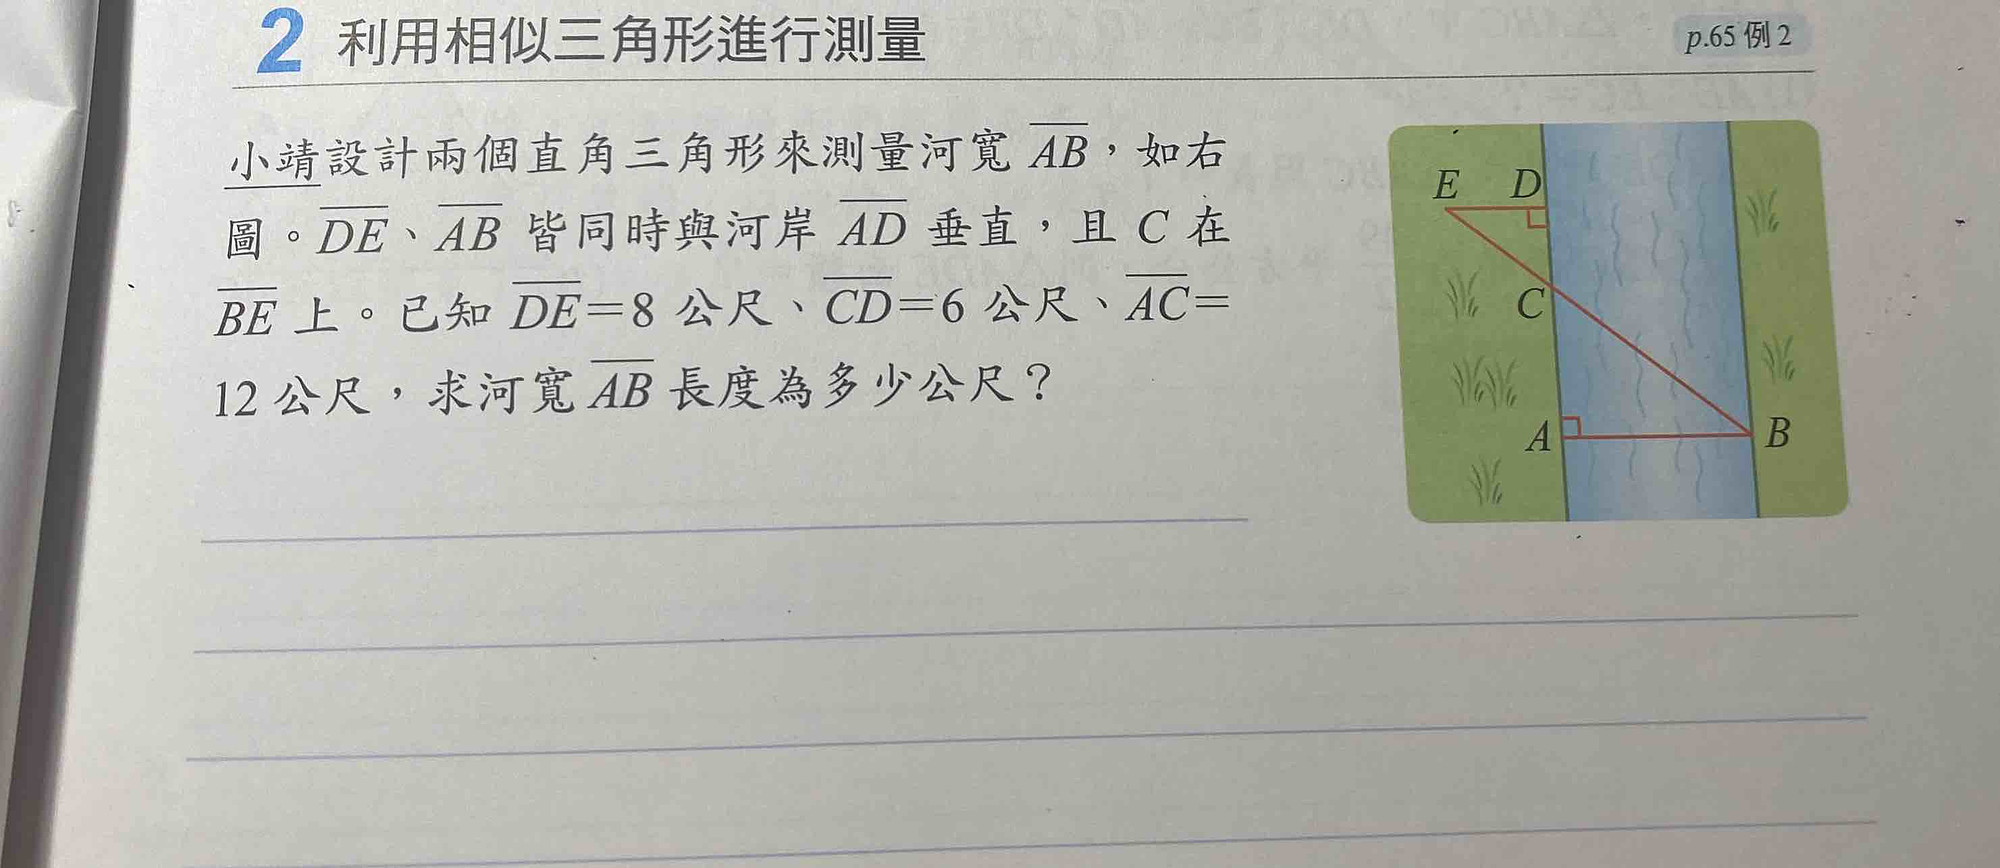 2 利用相似三角形進行測量
p.65 例2
小靖設計兩個直角三角形來測量河寬 AB,如右
圖。DE、AB 皆同時與河岸 AD 垂直,且 C 在
BE 上。已知 DE=8 公尺、CD=6 公尺、AC=
12 公尺,求河寬 AB 長度為多少公尺?
E D
C
A B